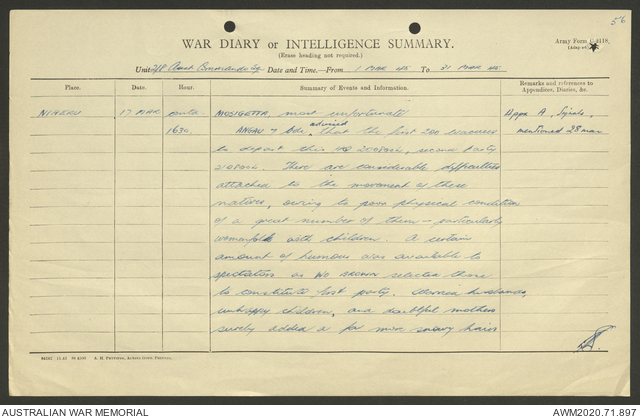 56
WAR DIARY or INTELLIGENCE SUMMARY.
(Erase heading not required.)
Army Form C.2118.
Unit 2/8 Aust Commando Sqn Date and Time.—From 1 MAR 45 To 31 MAR 45
Place. Date. Hour. Summary of Events and Information. Remarks and references to Appendices, Diaries, &c.
NIHERU 17 MAR contd. MOSIGETTA, most unfortunate Appx A, Signals,
1630. ANGAU 7 Bde. advised that the first 200 evacuees mentioned 28 mar
to depart this HQ 200800k, second party
210800k. There are considerable difficulties
attached to the movement of these
natives, owing to poor physical condition
of a great number of them – particularly
womenfolk with children. A certain
amount of humour was available to
spectators as WO BROWN selected those
to constitute first party. Worried husbands,
unhappy children, and doubtful mothers
surely added a few more snowy hairs
A. H. PETTIFER, ACTING GOVT. PRINTER.
AUSTRALIAN WAR MEMORIAL
AWM2020.71.897